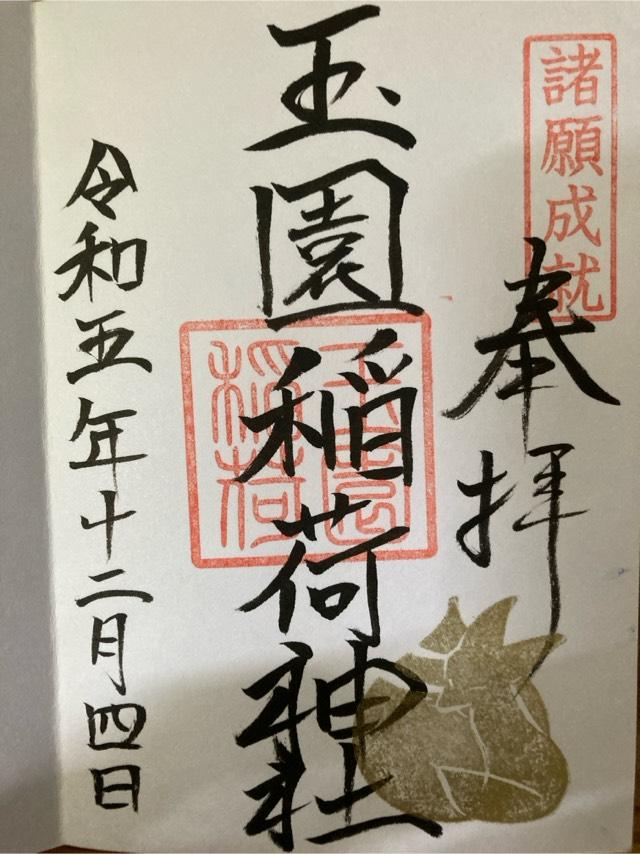 諸願成就
奉拝
玉園稲荷神社
玉園
稲荷
令和五年十二月四日